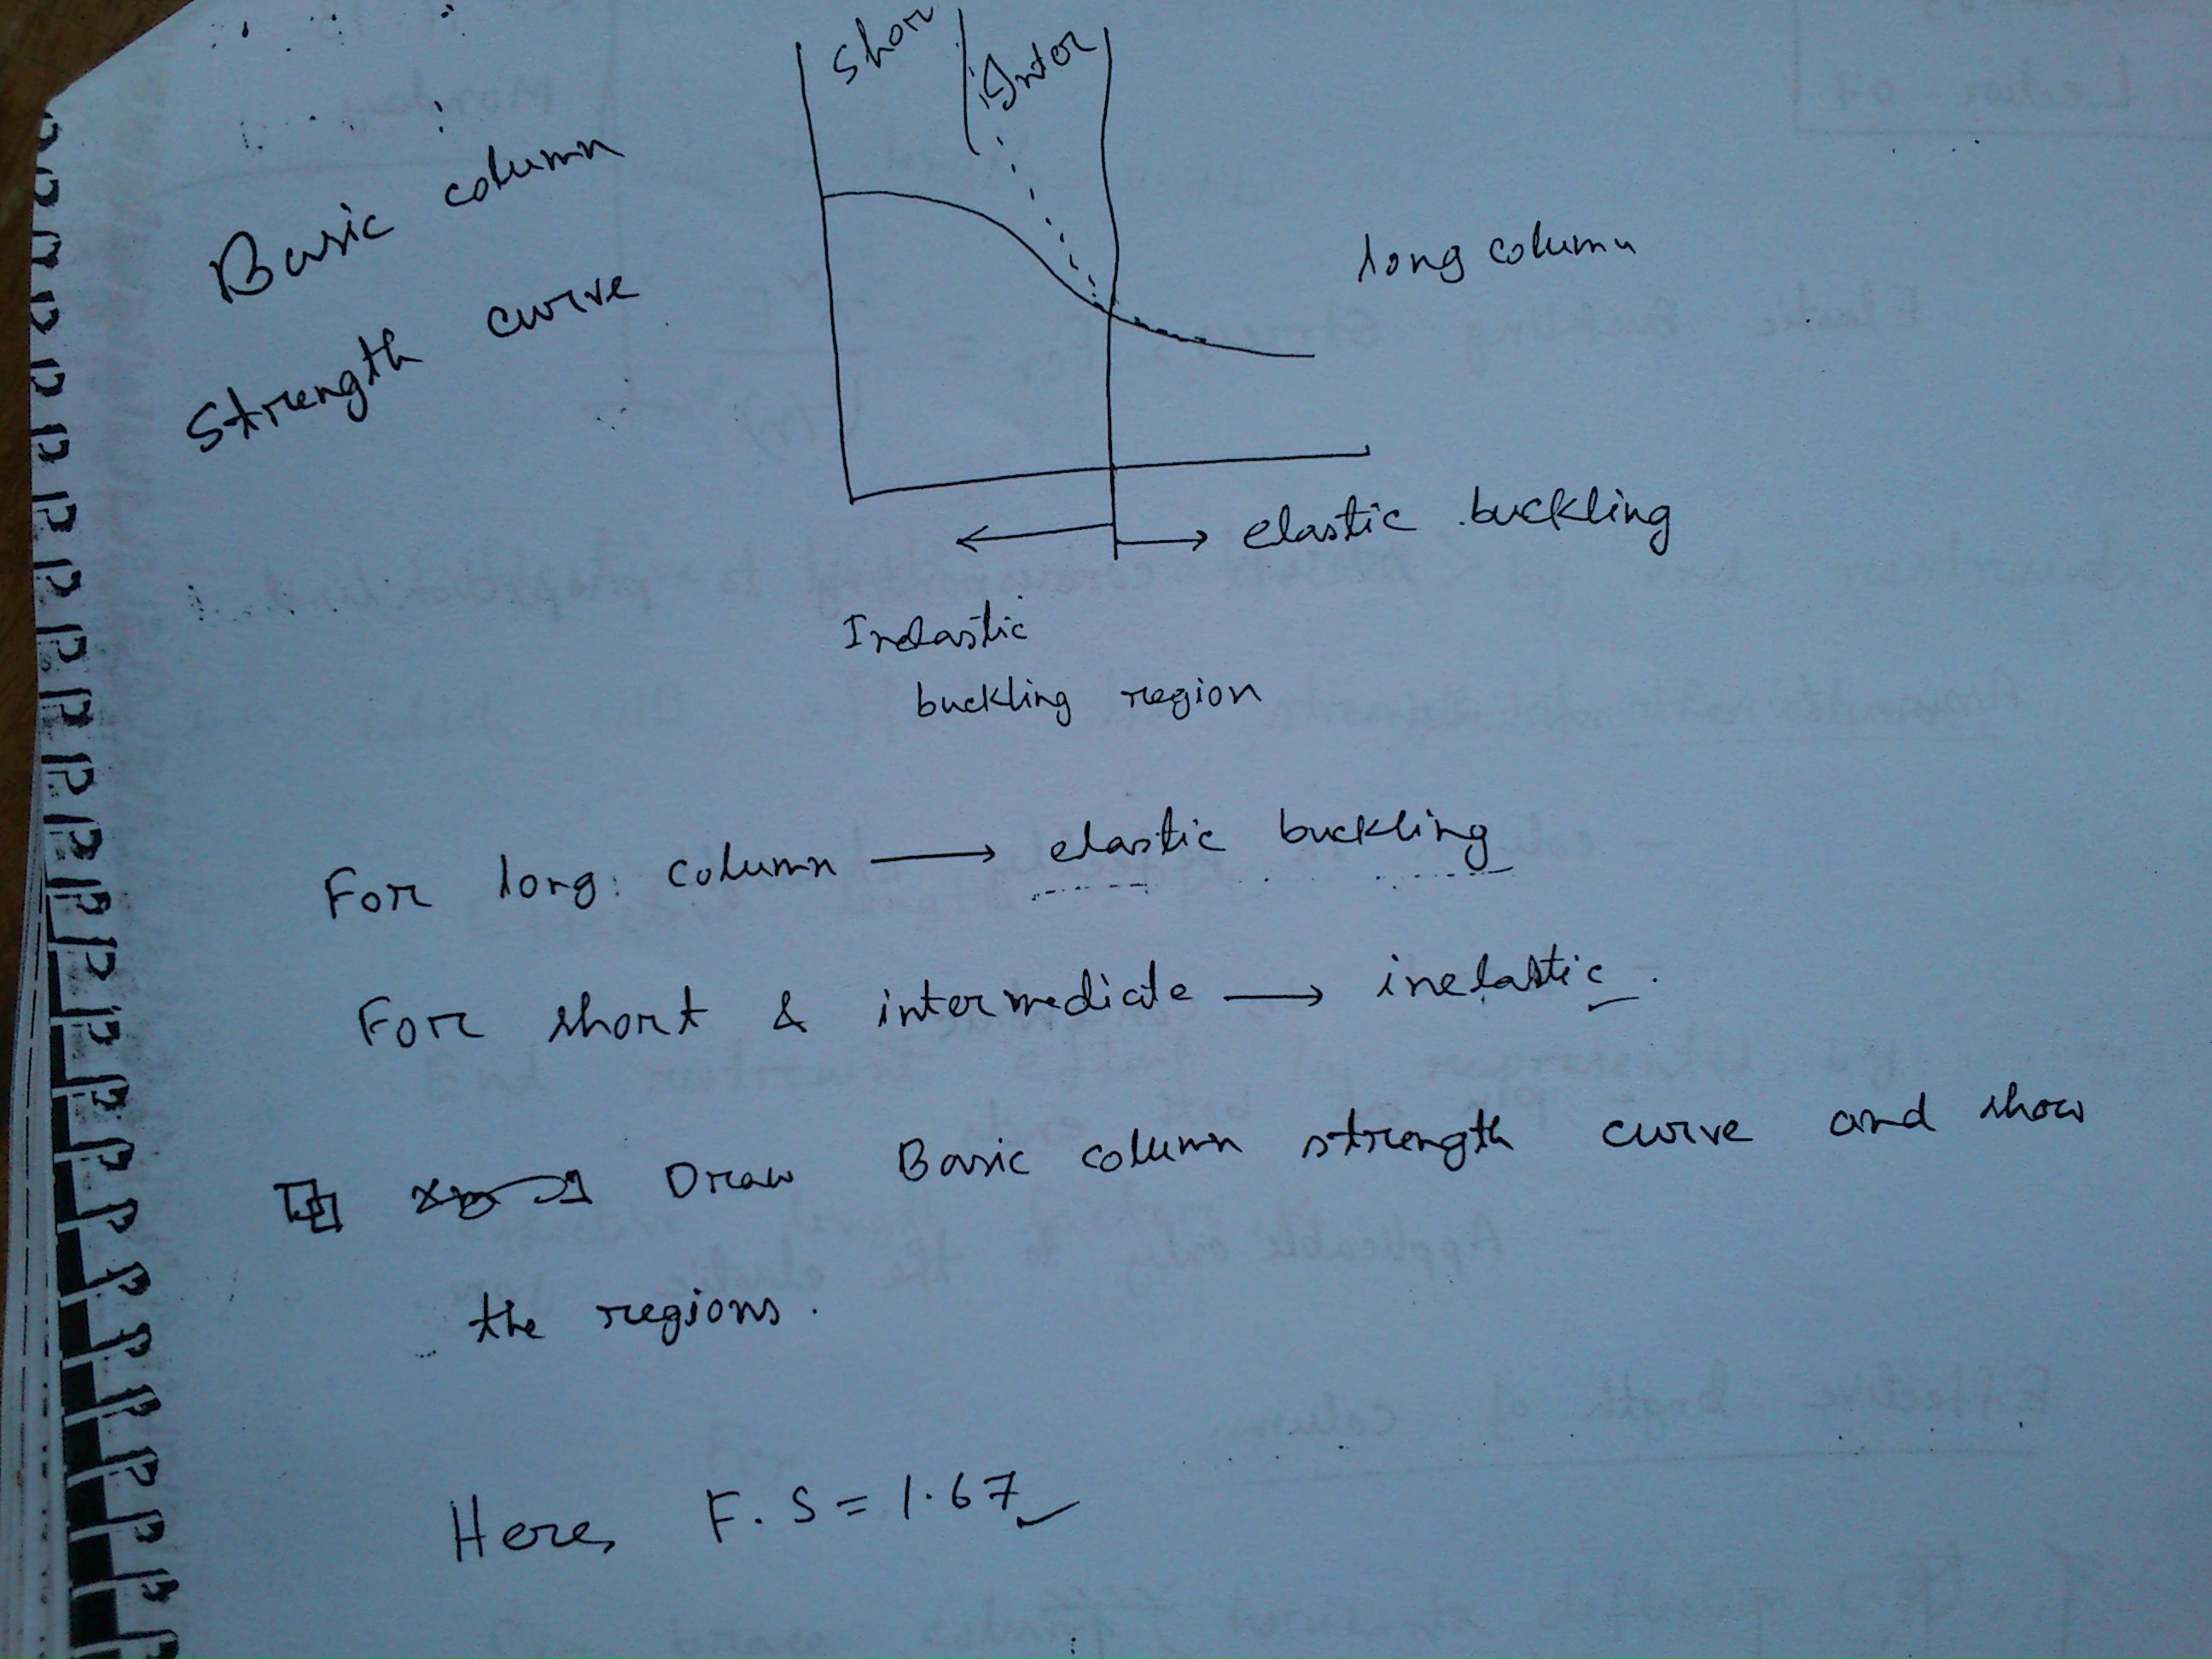 Basic column
Strength curve
Shor
Inter
long column
elastic buckling
Inelastic
buckling region
For long column → elastic buckling
For short & intermediate → inelastic.
Draw Basic column strength curve and show
the regions.
Here, F.S = 1.67